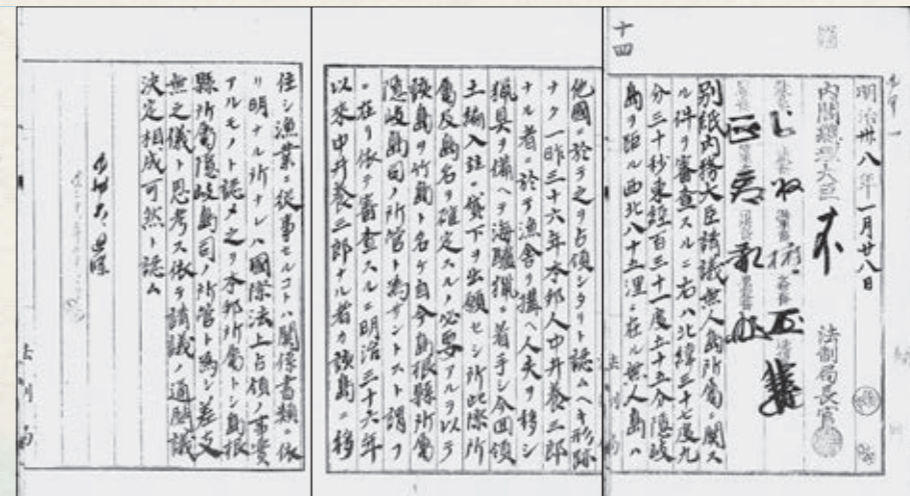 十四
明治卅八年一月廿八日
内閣總理大臣
法制局長官
別紙内務大臣請議無人島所屬ニ關ス
ル件ヲ審査スルニ右ハ北緯三十七度九
分三十秒東經百三十一度五十五分隱岐
島ヲ距ル西北八十五浬ニ在ル無人島ハ
他國ニ於テ之ヲ占領シタリト認ムヘキ形跡
ナク一昨三十六年本邦人中井養三郎
ナル者ニ於テ漁舍ヲ構ヘ人夫ヲ移シ
獵具ヲ備ヘテ海驢獵ニ着手シ今回領
土編入並ニ貸下ヲ出願セシ所此際所
屬及島名ヲ確定スルノ必要アルヲ以テ
該島ヲ竹島ト名ケ自今島根縣所屬
隱岐島司ノ所管ト為サントスト謂フ
ニ在リ依テ審査スルニ明治三十六年
以來中井養三郎ナル者カ該島ニ移
住シ漁業ニ從事セルコトハ關係書類ニ依
リ明ナル所ナレハ國際法上占領ノ事實
アルモノト認メ之ヲ本邦所屬トシ島根
縣所屬隱岐島司ノ所管ト為シ差支
無之儀ト思考ス依テ請議ノ通閣議
決定相成可然ト認ム